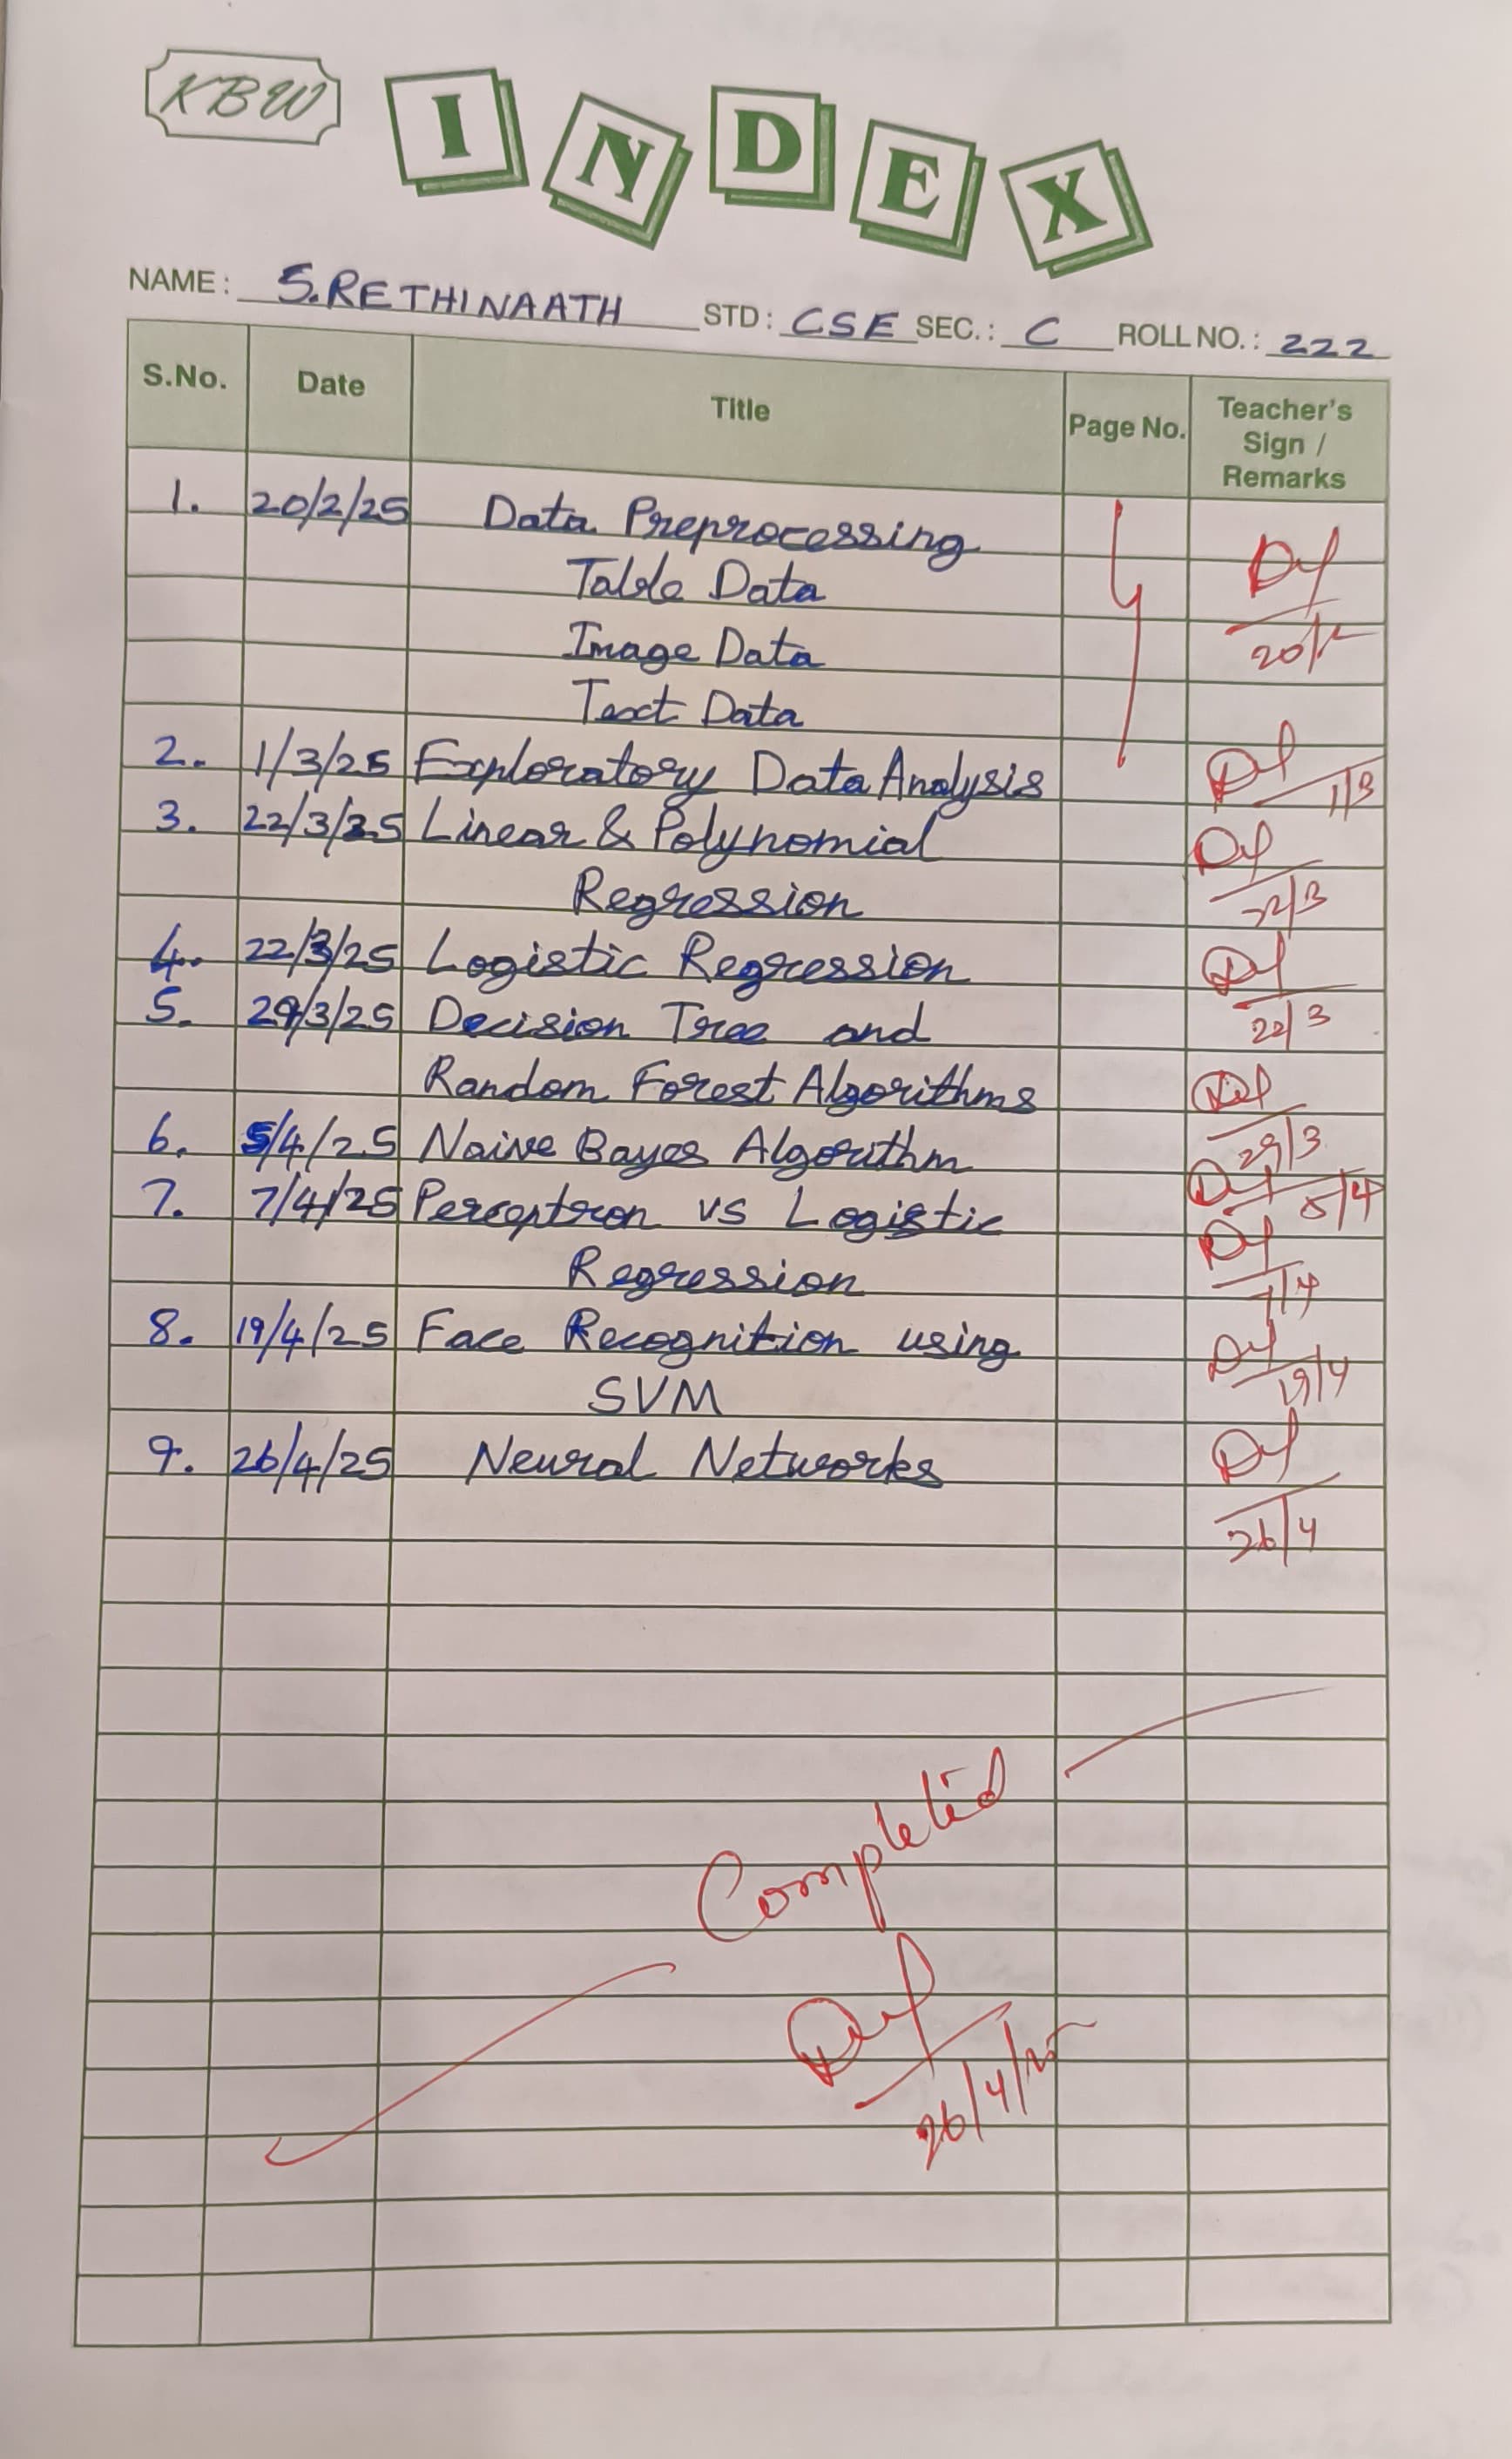 KBW
INDEX
NAME: S.RETHINAATH STD: CSE SEC.: C ROLL NO.: 222
S.No. Date Title Page No. Teacher's Sign / Remarks
1. 20/2/25 Data Preprocessing
Table Data
Image Data
20/2
Text Data
2. 1/3/25 Exploratory Data Analysis 1/3
3. 22/3/25 Linear & Polynomial
Regression 22/3
4. 22/3/25 Logistic Regression
5. 29/3/25 Decision Tree and 22/3
Random Forest Algorithms
6. 5/4/25 Naive Bayes Algorithm 29/3
7. 7/4/25 Perceptron vs Logistic 5/4
Regression 7/4
8. 19/4/25 Face Recognition using
SVM 19/4
9. 26/4/25 Neural Networks
26/4
Completed
26/4/25